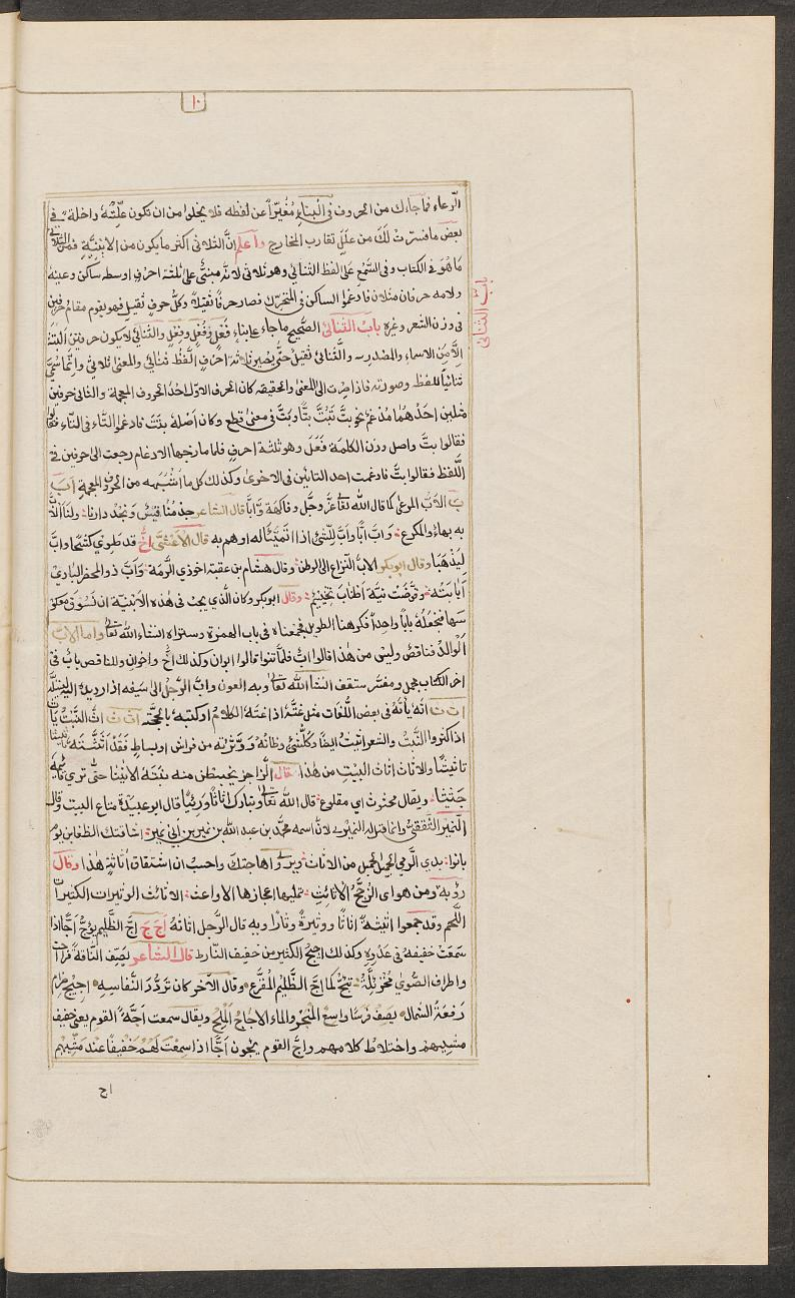 ١٠
الدعاء فما جاءك من الحروف في البناء مُغَيّراً عن لفظه فلا يخلوا من ان تكون علّته داخلة في
بعض ما فسّرت لك من علل تقارب المخارج واعلم انّ الثلاثى اكثر ما يكون من الابنية فمن الثلاثى
ما هو في الكتاب وفي السّمع على لفظ الثنائي وهو ثلاثى لانه مبنىّ على ثلثة احرف اوسطه ساكن وعينه
ولامه حرفان مثلان فادغموا الساكن في المتحرّك فصار حرفًا ثقيلًا وكلّ حرف ثقيل فهو يقوم مقام حرفين
في وزن الشعر وغيره باب الثنائى الصّحيح ما جاء على بناء فَعْلٍ وفُعْلٍ وفِعْلٍ والثنائى لا يكون حرفين البتة
الّا من الاسماء والمصدر والثنائى ثقيل حتى يصير ثلاثة احرف اللفظ ثنائى والمعنى ثلاثى وانّما سُمّى
ثنائياً للفظه وصورته فاذا صرت الى المعنى والحقيقه كان الحرف الاوّل احد الحروف المعجمة والثانى حرفين
مثلين احدهما مدغم نحو بتَّ تبُتُّ بتًّا وبتَّ في معنى قطع وكان اصله بتَتَ فادغموا التّاء في التّاء فقالوا
فقالوا بتَّ واصل وزن الكلمة فَعَلَ وهو ثلثة احرف فلما مازجها الادغام رجعت الى حرفين في
اللّفظ فقالوا بتَّ فادغمت احد التائين في الاخرى وكذلك كل ما اشبهه من الحروف المعجمة أ ب
ب الابّ المرعى كما قال الله تعالى عزّ وجلّ وفاكهةً وَابًّا قال الشاعر جذمنا قيس ونجد دارنا ولنا الابّ
به والمكرع وابّ ابًّا وابَّ للشئ اذا تهيّأ له او همّ به قال الاعشى اخٌ قد طوى كشحًا وابَّ
ليذهبا وقال ابوبكر الابّ النزاع الى الوطن وقال هشام بن عقبة اخو ذي الرّمة وابّ ذو المحضر البادى
ابابته وقوّضت نيّة اطناب تخييم وقال ابوبكر وكان الّذي يجب في هذه الابنية ان نسوق
سها فنجعله باباً واحداً فكرهنا الطويل فجمعناه في باب الهمزة وستراه انشاء الله تعالى واما الاب
الوالد فناقص وليس من هذا قالوا ابٌ فلمّا ثنوا قالوا ابوان وكذلك اخ واخوان وللناقص باب في
اخر الكتاب مجمل ومفسّر ستقف انشا الله تعالى وبه العون وابّ الرّجل الى سيفه اذا ردّ يده اليه ليستلّه
أ ت ت اتّه يأتّه في بعض اللّغات مثل غتّه اذا غتّه بالكلام او كبته بالحجّة أ ث ث اثّ النّبتُ يأثّ
اذا كثر والنّبت والشعر اثيث ايضًا وكلّ شئ وطّأته ووثّرته من فراش او بساط فقد اثّثته تأثيثا
والاثاث اثاث البيت من هذا قال الرّاجز يخبطن منه نبته الاثيثا حتّى ترى قائمه
جثيثا ويقال مجثوث اي مقلوع قال الله تعالى وتبارك اثاثًا ورئيًا قال ابو عبيدة متاع البيت وقال
النّمير الثّقفى وانما قيل له النّميرى لانّ اسمه محمّد بن عبد الله بن نمير بن ابى نمير اشاقتك الظعاين يوم
بانوا بذي الزّىّ الجميل من الاثاث واحسب ان اشتقاق اثاثة هذا وقال
رؤبة ومن هواى الرّجّح الاثائث تميلها اعجازها الاواعث الاثائث الوثيرات الكثيرات
اللّحم وقد جمعوا اثيثة اثاثًا ووثيرة وثارًا وبه قال الرّجل اثاثة أ ج ج اجّ الظّليم يؤجّ اجًّا اذا
سمعت حفيفه في عدوه وكذلك اجيج الكير من حفيف النّار قال الشاعر يصف النّاقة فراحت
واطراف الصّوى محزئلّة تئجّ كما اجّ الظّليم المُفزّع وقال الآخر كان تردّد انفاسه اجيج ضرام
زفته الشمال يصف فرسًا واسع المنخر والماء الاجاج الملح ويقال سمعت اجّة القوم يعنى حفيف
مشيهم واختلاط كلامهم واجّ القوم يئجّون اجًّا اذا سمعت لهم حفيفًا عند مشيهم
باب الثنائى
اح